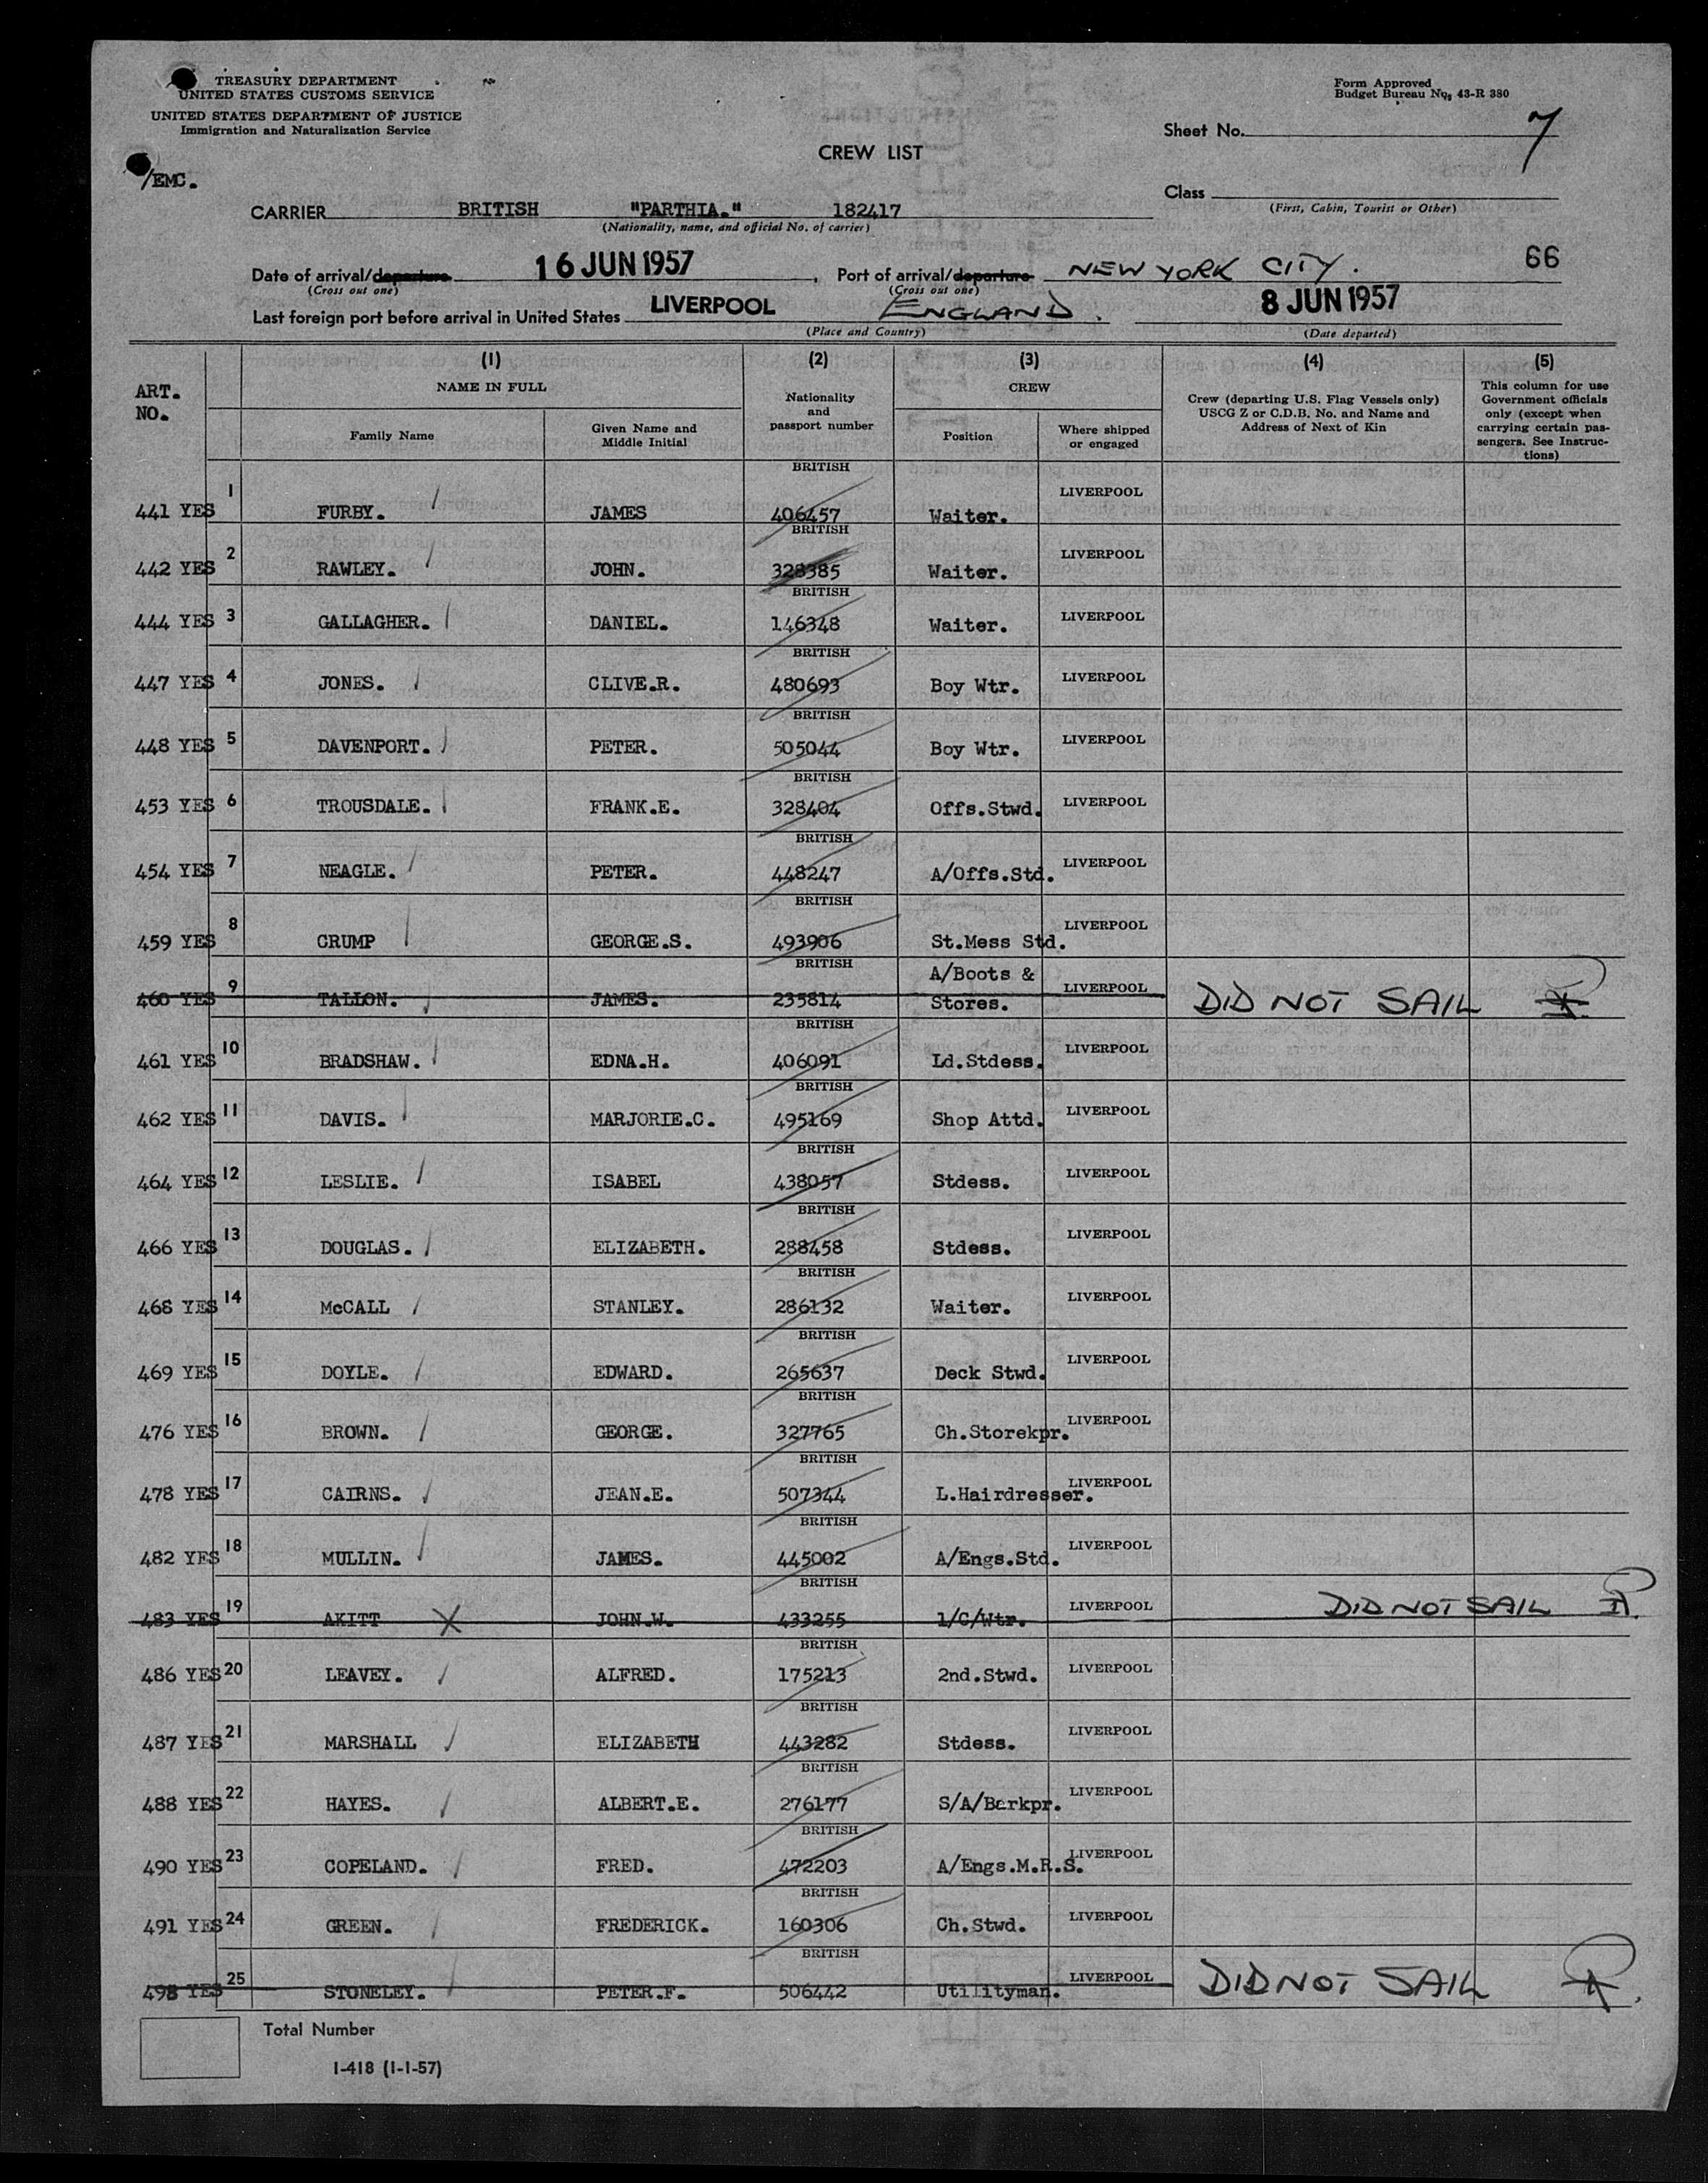 TREASURY DEPARTMENT
UNITED STATES CUSTOMS SERVICE
UNITED STATES DEPARTMENT OF JUSTICE
Immigration and Naturalization Service
/EMC.
Form Approved
Budget Bureau No. 43-R 380
Sheet No. 7
CREW LIST
Class
(First, Cabin, Tourist or Other)
CARRIER BRITISH "PARTHIA." 182417
(Nationality, name, and official No. of carrier)
66
Date of arrival/departure 16 JUN 1957, Port of arrival/departure NEW YORK CITY.
(Cross out one) (Cross out one)
Last foreign port before arrival in United States LIVERPOOL ENGLAND. 8 JUN 1957
(Place and Country) (Date departed)
ART. NO. (1) (2) (3) (4) (5)
NAME IN FULL Nationality and passport number CREW Crew (departing U.S. Flag Vessels only) USCG Z or C.D.B. No. and Name and Address of Next of Kin This column for use Government officials only (except when carrying certain passengers. See Instructions)
Family Name Given Name and Middle Initial Position Where shipped or engaged
441 YES 1 FURBY. JAMES BRITISH 406457 Waiter. LIVERPOOL
442 YES 2 RAWLEY. JOHN. BRITISH 328385 Waiter. LIVERPOOL
444 YES 3 GALLAGHER. DANIEL. BRITISH 146348 Waiter. LIVERPOOL
447 YES 4 JONES. CLIVE.R. BRITISH 480693 Boy Wtr. LIVERPOOL
448 YES 5 DAVENPORT. PETER. BRITISH 505044 Boy Wtr. LIVERPOOL
453 YES 6 TROUSDALE. FRANK.E. BRITISH 328404 Offs.Stwd. LIVERPOOL
454 YES 7 NEAGLE. PETER. BRITISH 448247 A/Offs.Std. LIVERPOOL
459 YES 8 CRUMP GEORGE.S. BRITISH 493906 St.Mess Std. LIVERPOOL
460 YES 9 TALLON. JAMES. BRITISH 235814 A/Boots & Stores. LIVERPOOL DID NOT SAIL
461 YES 10 BRADSHAW. EDNA.H. BRITISH 406091 Ld.Stdess. LIVERPOOL
462 YES 11 DAVIS. MARJORIE.C. BRITISH 495169 Shop Attd. LIVERPOOL
464 YES 12 LESLIE. ISABEL BRITISH 438057 Stdess. LIVERPOOL
466 YES 13 DOUGLAS. ELIZABETH. BRITISH 288458 Stdess. LIVERPOOL
468 YES 14 McCALL STANLEY. BRITISH 286132 Waiter. LIVERPOOL
469 YES 15 DOYLE. EDWARD. BRITISH 265637 Deck Stwd. LIVERPOOL
476 YES 16 BROWN. GEORGE. BRITISH 327765 Ch.Storekpr. LIVERPOOL
478 YES 17 CAIRNS. JEAN.E. BRITISH 507344 L.Hairdresser. LIVERPOOL
482 YES 18 MULLIN. JAMES. BRITISH 445002 A/Engs.Std. LIVERPOOL
483 YES 19 AKITT X JOHN.W. BRITISH 433255 1/C/Wtr. LIVERPOOL DID NOT SAIL
486 YES 20 LEAVEY. ALFRED. BRITISH 175213 2nd.Stwd. LIVERPOOL
487 YES 21 MARSHALL ELIZABETH BRITISH 443282 Stdess. LIVERPOOL
488 YES 22 HAYES. ALBERT.E. BRITISH 276177 S/A/Barkpr. LIVERPOOL
490 YES 23 COPELAND. FRED. BRITISH 472203 A/Engs.M.R.S. LIVERPOOL
491 YES 24 GREEN. FREDERICK. BRITISH 160306 Ch.Stwd. LIVERPOOL
498 YES 25 STONELEY. PETER.F. BRITISH 506442 Utilityman. LIVERPOOL DID NOT SAIL
Total Number
I-418 (1-1-57)